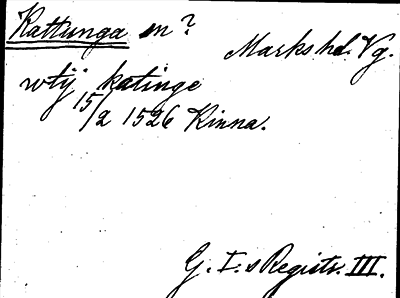 Kattunga sn?
Marks hd. Vg.
wtij katinge
15/2 1526 Kinna.
G. I.s Registr. III.